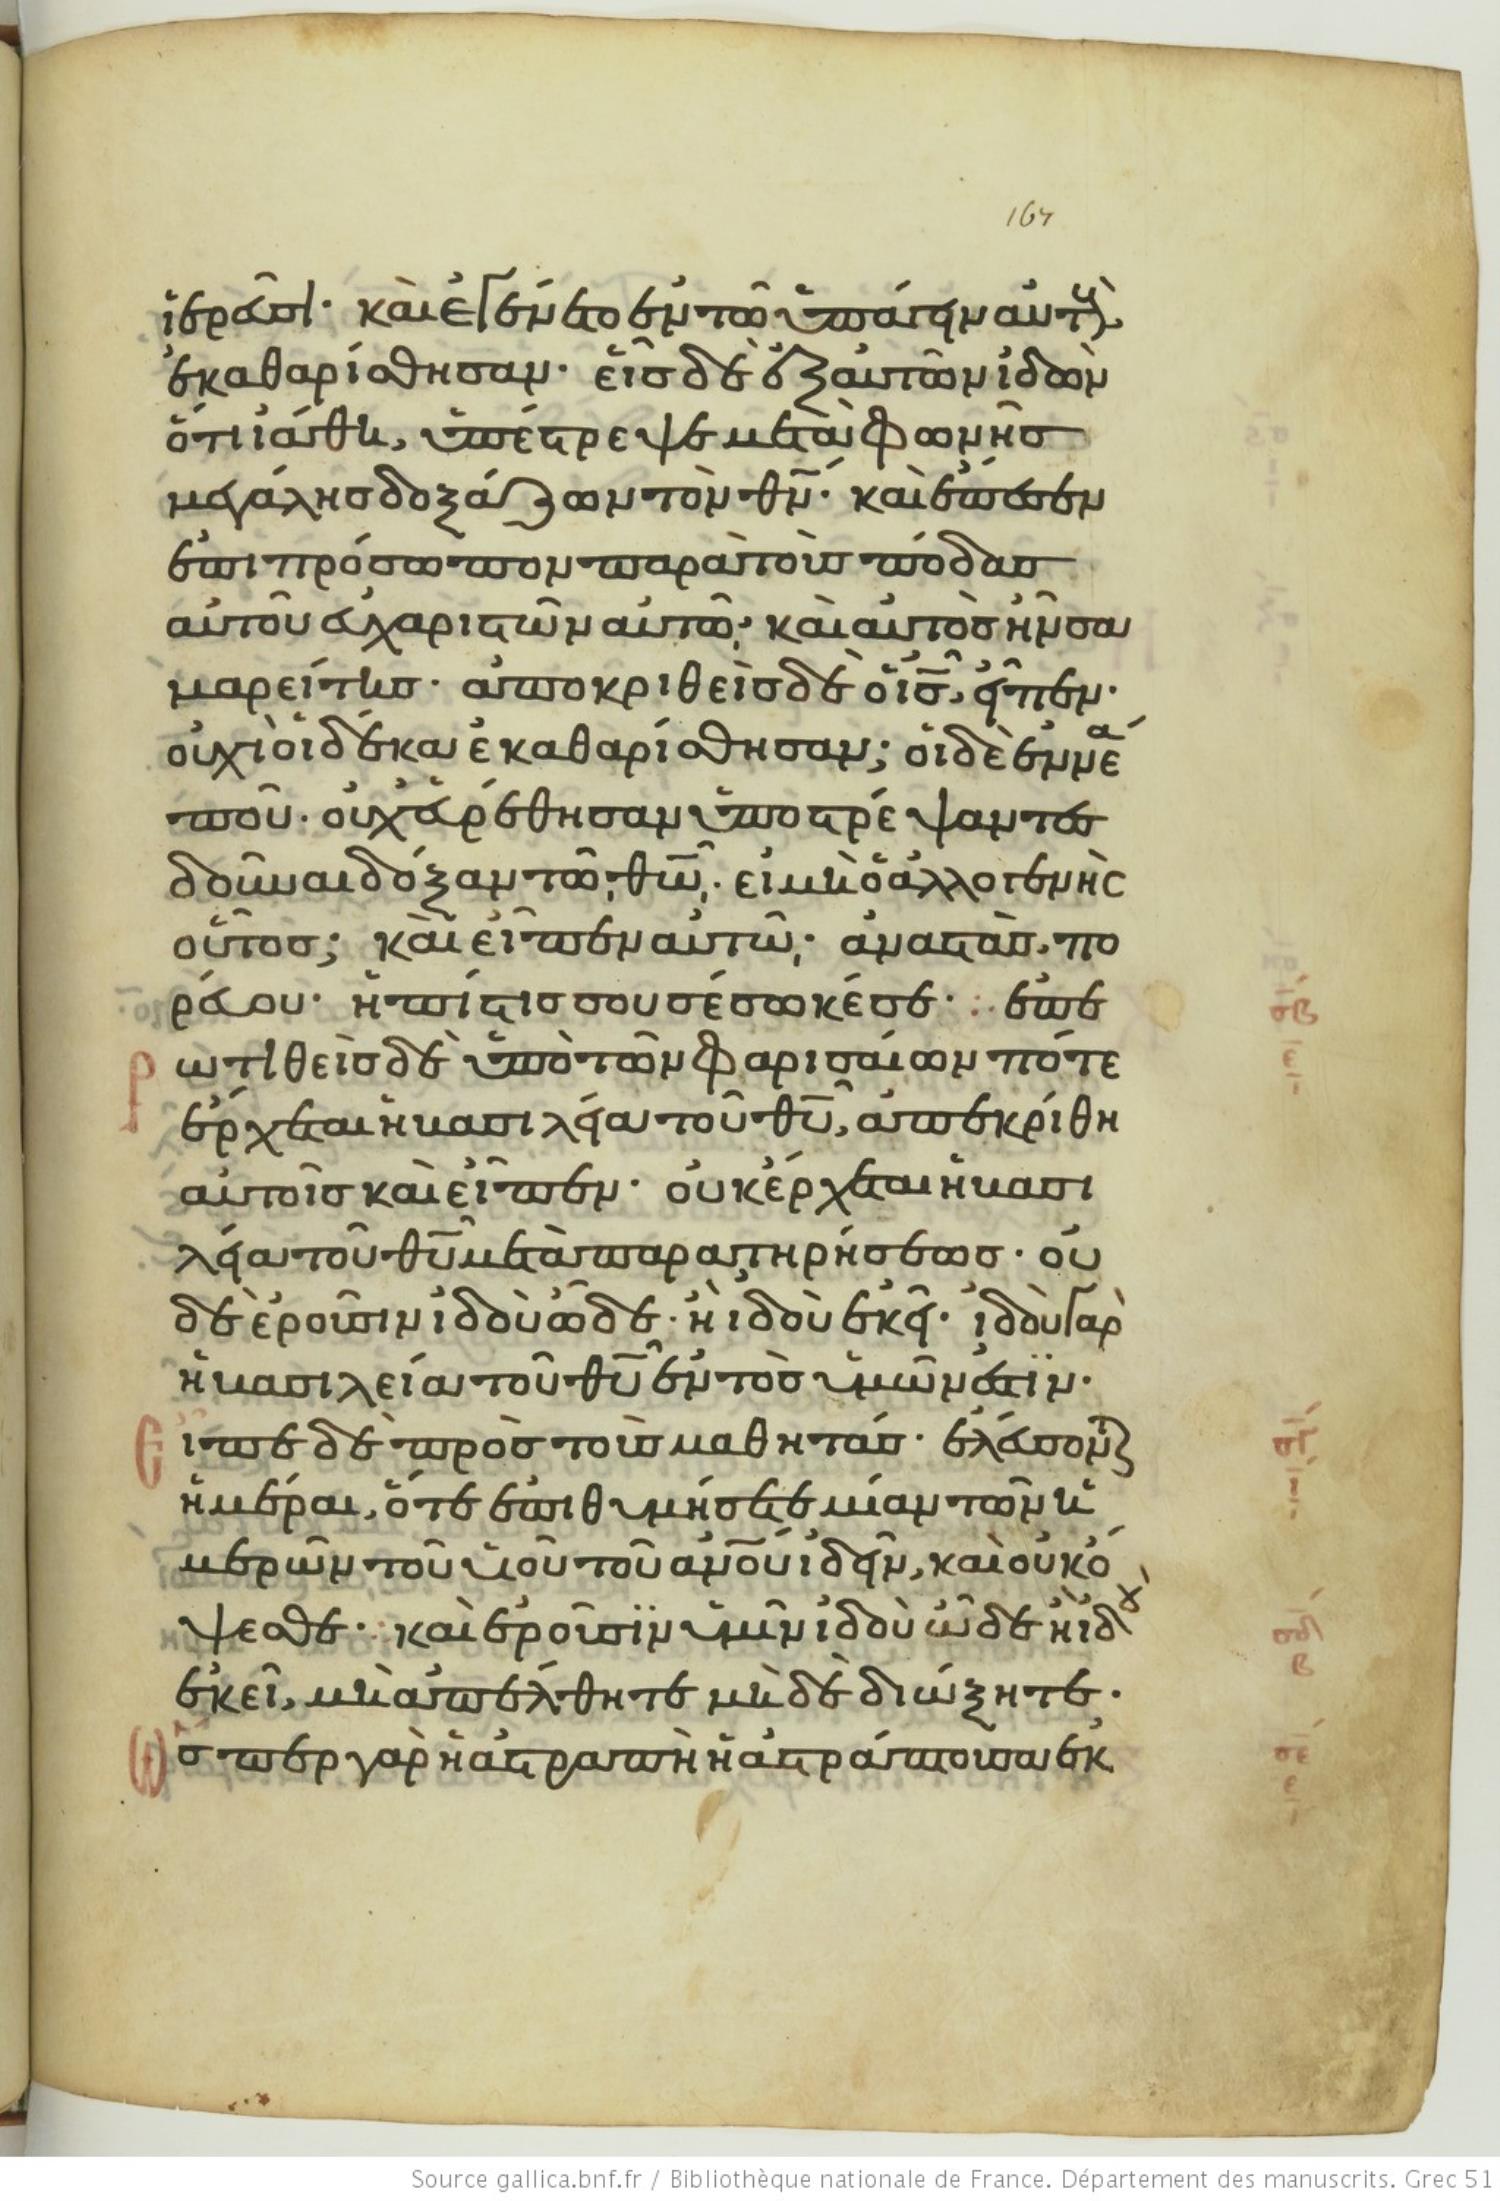 167
ἱερεῦσι· καὶ ἐγένετο ἐν τῶ ὑπάγειν αὐτοὺς,
ἐκαθαρίσθησαν· εἷς δὲ ἐξ αὐτῶν ἰδὼν
ὅτι ἰάθη, ὑπέστρεψε μετὰ φωνῆς
μεγάλης δοξάζων τὸν θν̅· καὶ ἔπεσεν
ἐπι πρόσωπον παρὰ τοὺς πόδας
αὐτοῦ εὐχαριστῶν αὐτῶ· καὶ αὐτὸς ἦν σα
μαρείτης· ἀποκριθεὶς δὲ ὁ ις̅, εἶπεν·
οὐχὶ οἱ δέκα ἐκαθαρίσθησαν; οἱ δὲ ἐννέα
ποῦ· οὐχ εὑρέθησαν ὑποστρέψαντες
δοῦναι δόξαν τῶ θω̅· εἰ μὴ ὁ ἀλλογενὴς
οὗτος; καὶ εἶπεν αὐτῶ· ἀναστὰς, πο
ρεύου· ἡ πίστις σου σέσωκέ σε· ἐπε
ρωτηθεὶς δὲ ὑπὸ τῶν φαρισαίων πότε
ἔρχεται ἡ βασιλεία τοῦ θυ̅, ἀπεκρίθη
αὐτοῖς καὶ εἶπεν· οὐκ ἔρχεται ἡ βασι
λεία τοῦ θυ̅ μετὰ παρατηρήσεως· οὐ
δὲ ἐροῦσιν ἰδοὺ ὧδε· ἢ ἰδοὺ ἐκεῖ· ἰδοὺ γὰρ
ἡ βασιλεία τοῦ θυ̅ ἐντὸς ὑμῶν ἐστϊν·
Εἶπε δὲ πρὸς τοὺς μαθητάς· ἐλεύσονται
ἡμέραι, ὅτε ἐπιθυμήσετε μίαν τῶν ἡ
μερῶν τοῦ υἱοῦ τοῦ ανο̅υ ἰδεῖν, καὶ οὐκ ὄ
ψεσθε· καὶ ἐροῦσϊν ὑμῖν ἰδοὺ ὧδε ἢ ἰδοὺ
ἐκεῖ, μὴ ἀπέλθητε μὴ δὲ διώξητε·
ὥσπερ γὰρ ἡ ἀστραπὴ ἡ ἀστράπτουσα ἐκ
Source gallica.bnf.fr / Bibliothèque nationale de France. Département des manuscrits. Grec 51